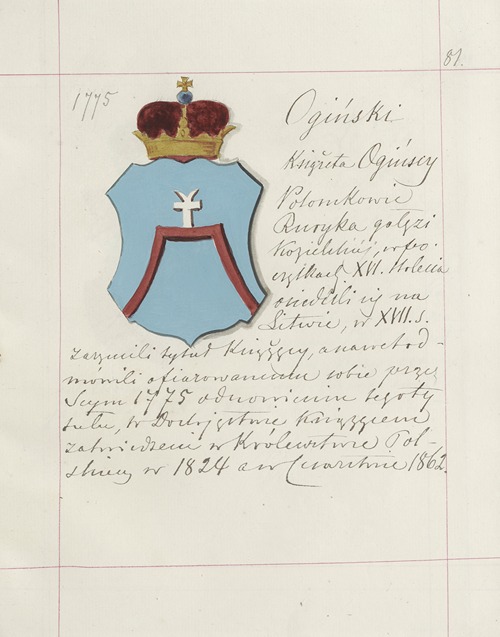 81.
1775
Ogiński
Książęta Ogińscy
Potomkowie
Ruryka gałęzi
Kozielskiej, w po-
czątkach XVI. stolecia
osiedlili się na
Litwie, w XVII. s.
zarzucili tytuł Książęcy, a nawet od-
mówili ofiarowanem sobie przez
Sejm 1775 odnowieniu tegoż ty-
tułu, w Dostojeństwie Książęcem
zatwierdzeni w Królewstwie Pol-
skiem w 1824 a w Cesarstwie 1862